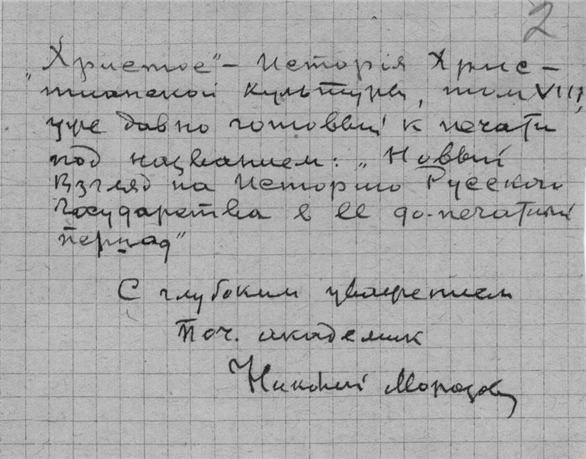 2
„Христос" – Исторія Хрис-
тианской культуры, том VIII,
уже давно готовый к печати
под названием: „Новый
Взгляд на Историю Русского
Государства в ее до-печатный
период"
С глубоким уважением
Поч. академик
Николай Морозов